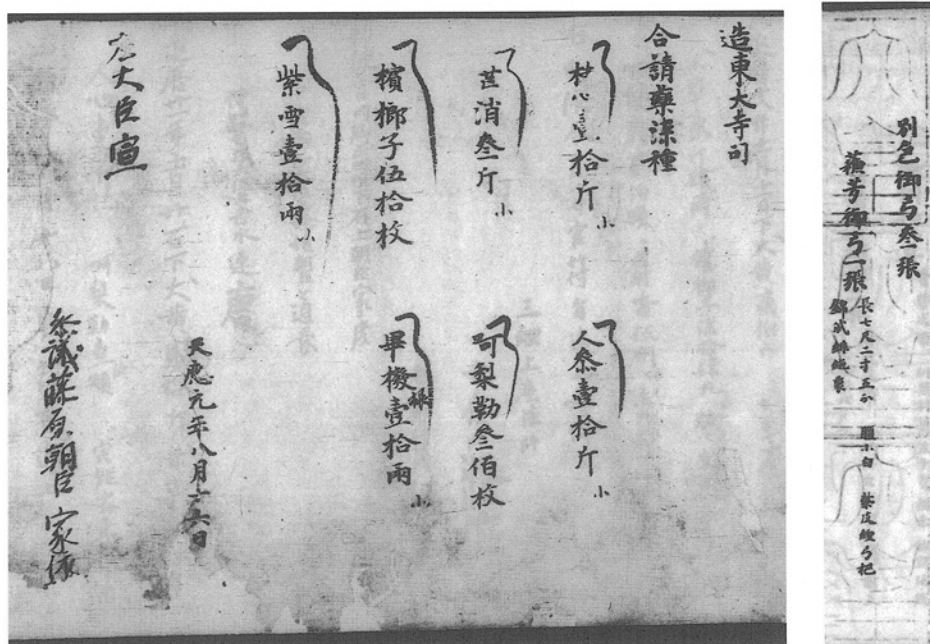 造東大寺司
合請藥漆種
桂心壹拾斤 小
人參壹拾斤 小
芒消叄斤 小
呵梨勒叄佰枚
檳榔子伍拾枚
畢撥根壹拾兩 小
紫雪壹拾兩 小
天應元年八月十六日
左大臣宣
參議藤原朝臣 家依
別色御弓叄張
蘇芳御弓一張 長七尺二寸五分 小白 紫皮纏弓杷